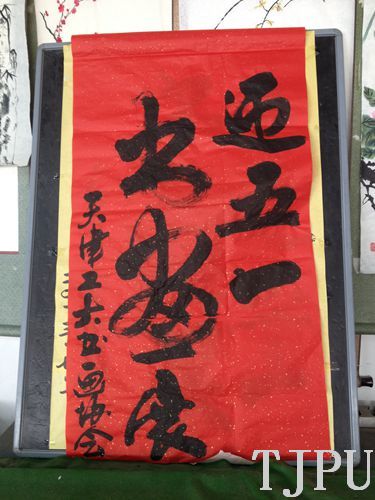 迎五一
书画展
天津工大书画协会
TJPU